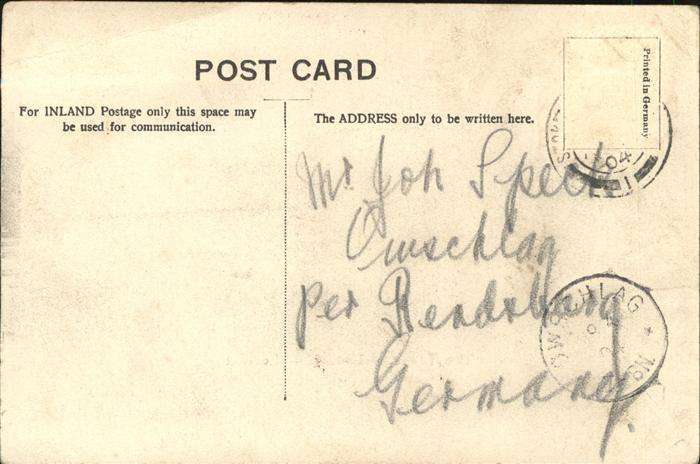 POST CARD
For INLAND Postage only this space may
be used for communication.
The ADDRESS only to be written here.
Printed in Germany
04
Mr Joh Speck
Owschlag
per Rendsburg
Germany.
OWSCHLAG